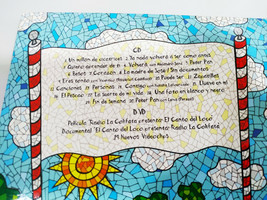 CD
1 Un millón de cicatrices 2 Ya nada volverá a ser como antes
3 Quiero aprender de ti 4 Volverá 5 Peter Pan
6 Besos 7 Corazón 8 La madre de José / Sin documentos
9 Tres sonto 10 Puede ser 11 Zapatillas
12 Canciones 13 Personas 14 Contigo 15 Llueve en mí
16 El Pescao 17 La suerte de mi vida 18 Una foto en blanco y negro
19 Fin de semana 20 Peter Pan
DVD
Película Radio La Colifata presenta: El Canto del Loco
Documental "El Canto del Loco presenta: Radio La Colifata"
14 Nuevos Videoclips